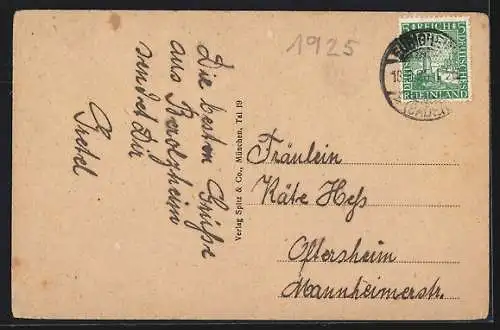 1925
Die besten Grüße
aus Berolzheim
sendet Dir
Gretel
Verlag Spitz & Co., München, Tal 19
DEUTSCHES REICH
RHEINLAND
Fräulein
Käte Heß
Oftersheim
Mannheimerstr.